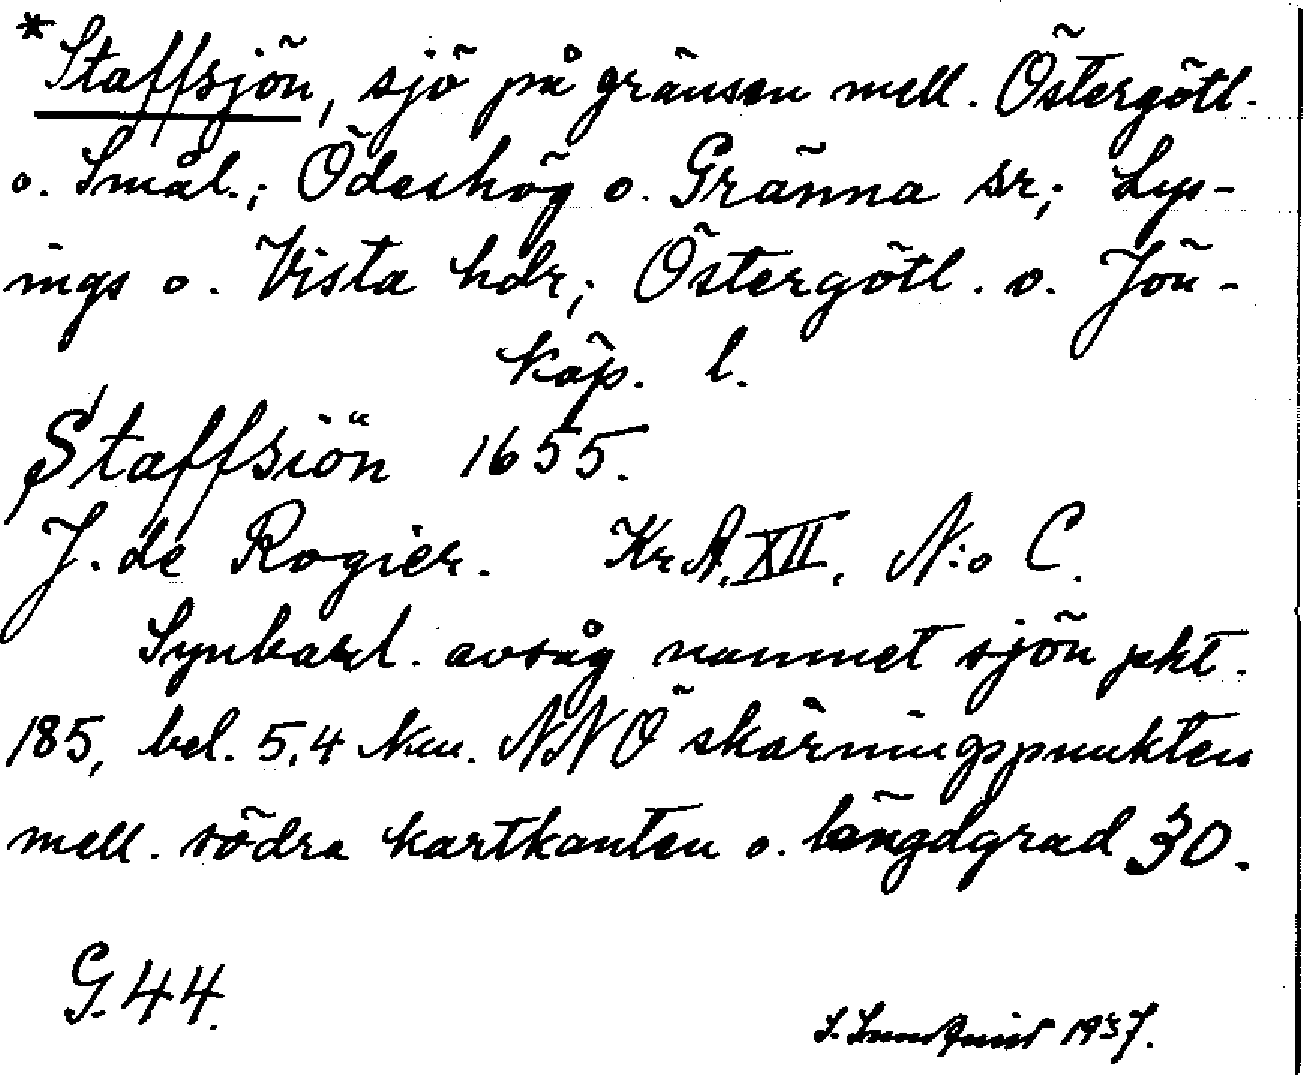 *Staffsjön, sjö på gränsen mell. Östergötl.
o. Smål.; Ödeshög o. Gränna sr; Lys-
ings o. Vista hdr; Östergötl. o. Jön-
köp. l.
Staffsiön 1655.
J. de Rogier. KrA. XII. N:o C.
Synbarl. avsåg namnet sjön pkt.
185, bel. 5,4 km. NNÖ skärningspunkten
mell. södra kartkanten o. längdgrad 30.
G. 44.
S. Lundquist 1937.